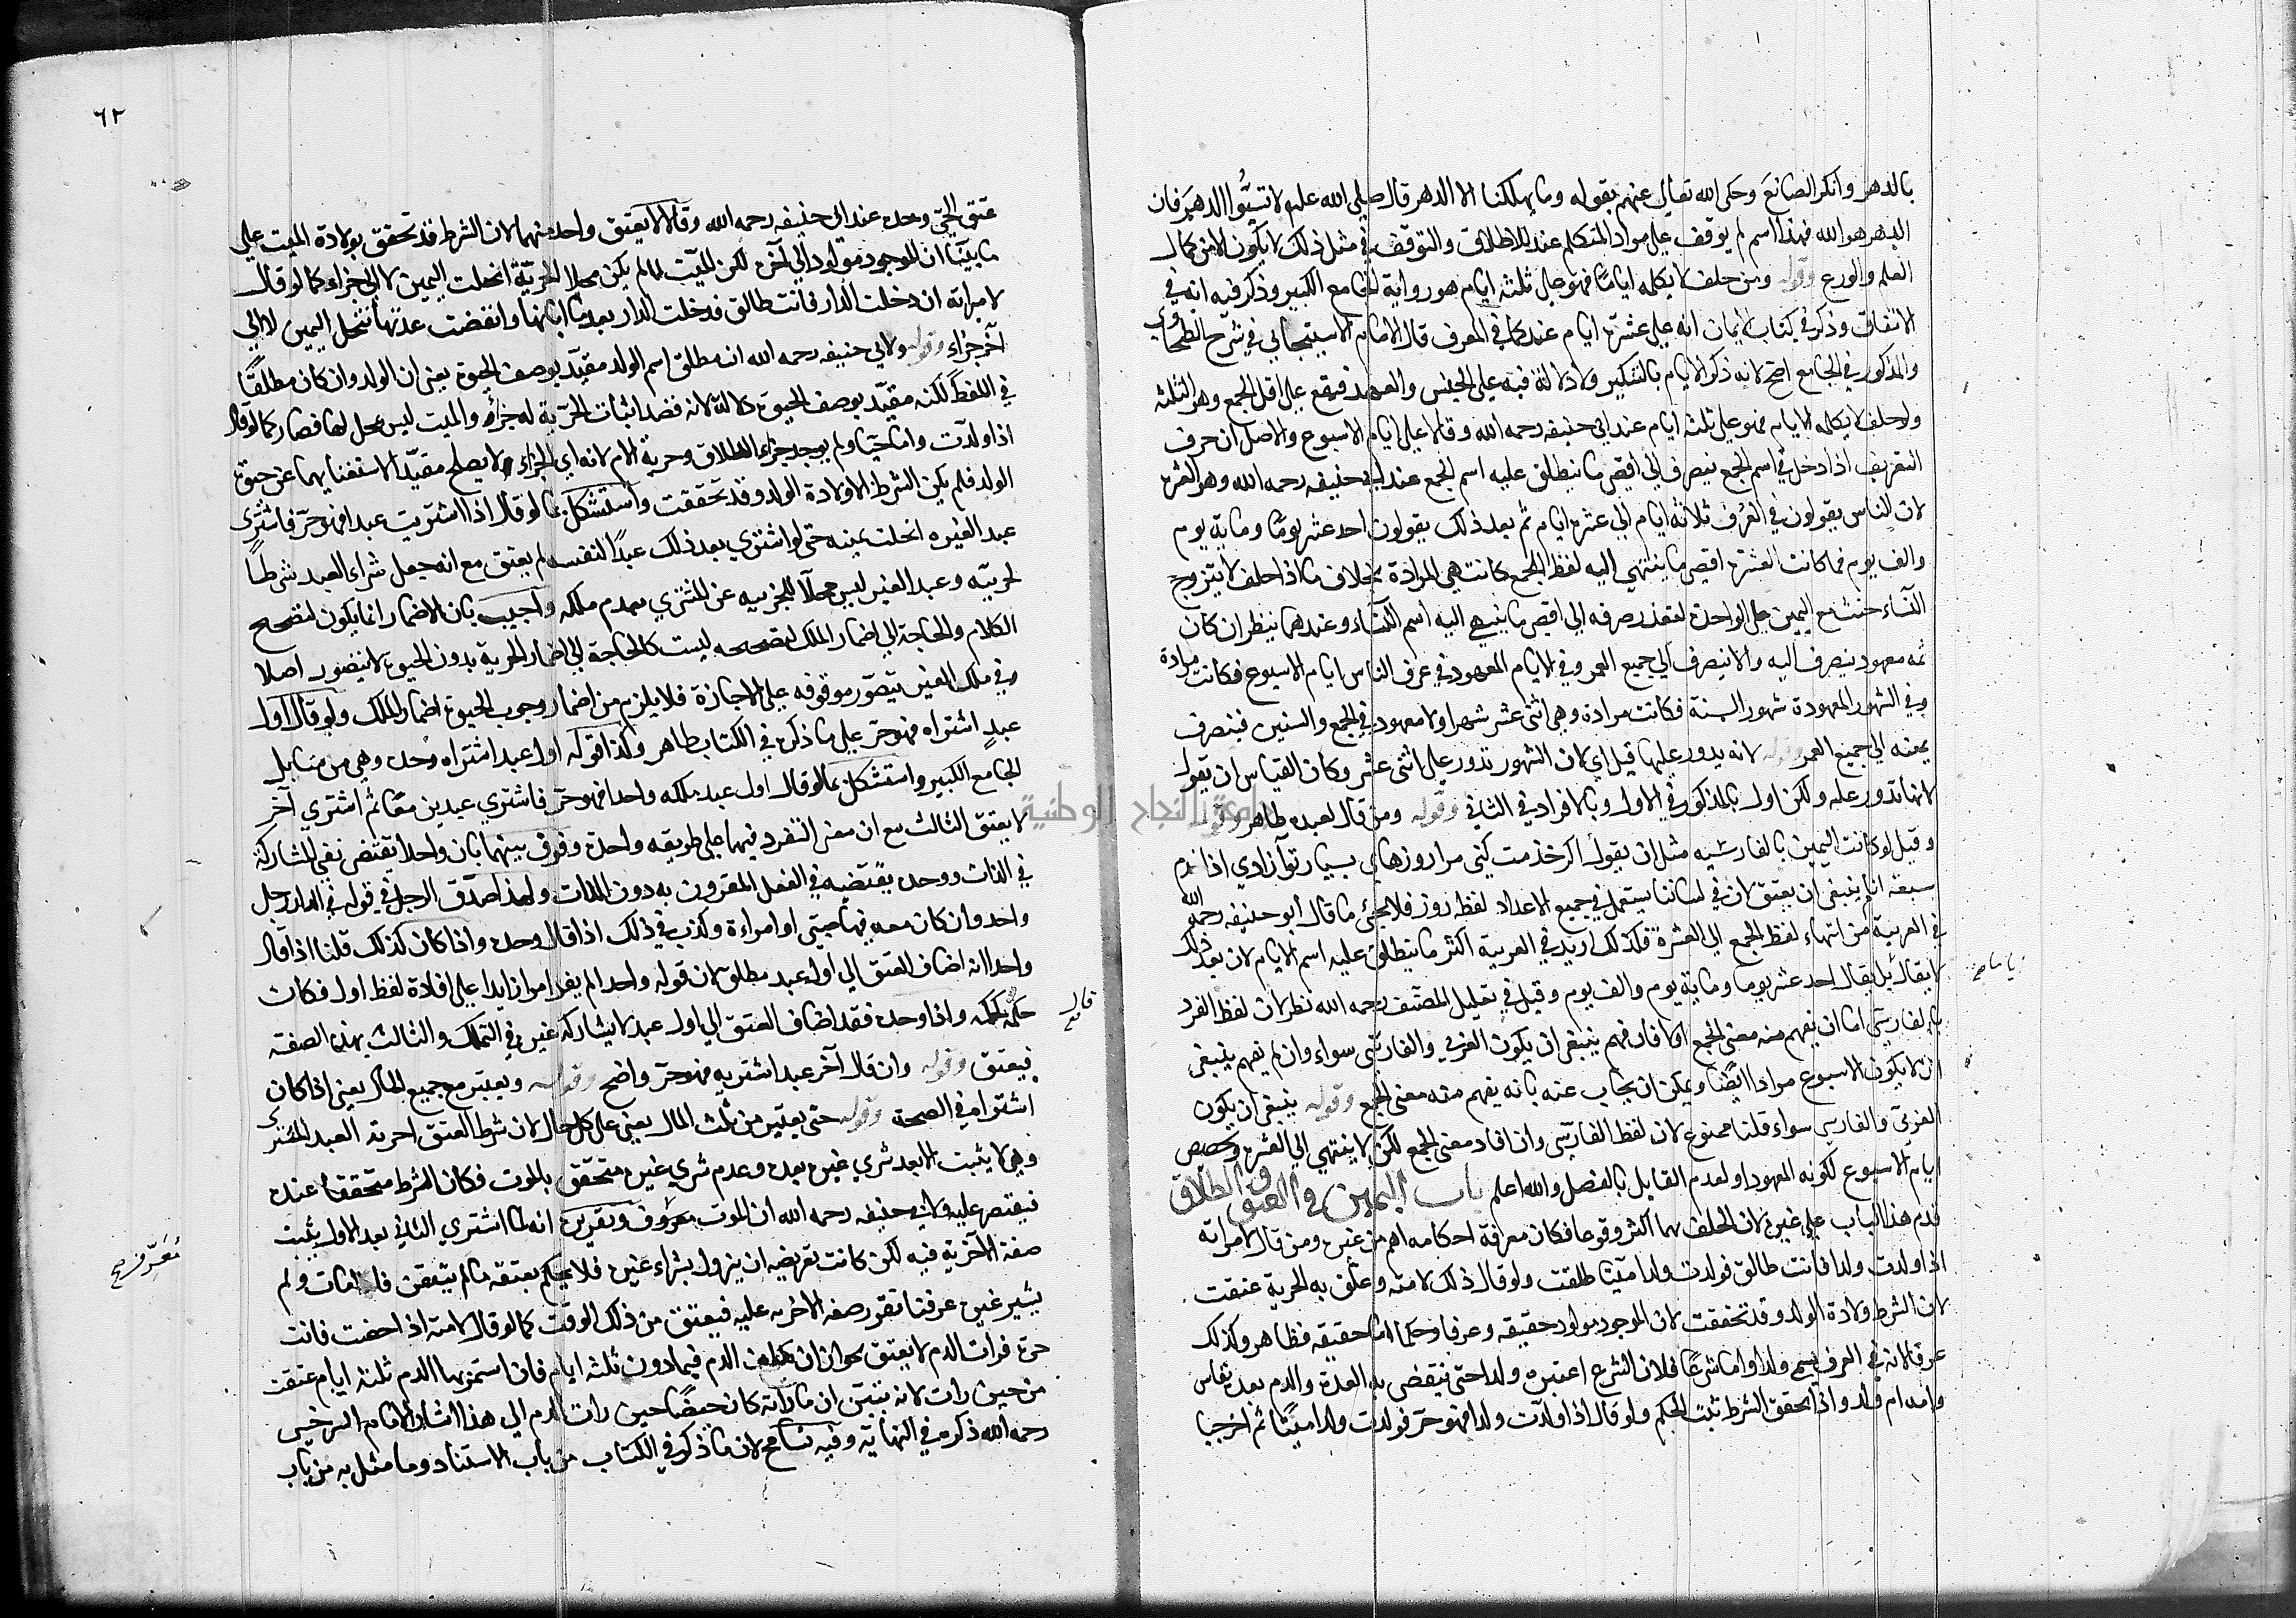 بالدهر وانكر الصانع وحكى الله تعالى عنهم بقوله وما يهلكنا الا الدهر قال صلى الله عليه لا تسبّوا الدهر فان
الدهر هو الله فهذا اسم لم يوقف على مراد المتكلم عند الاطلاق والتوقف في مثل ذلك لا يكون الا من كمال
العلم والورع وقوله ومن حلف لا يكلمه اياما فهو على ثلثة ايام هو رواية الجامع الكبير وذكر فيه انه في
الاتفاق وذكر في كتاب الايمان انه على عشرة ايام عنده كما في المعرف قال الامام الاسبيجابي في شرح الطحاوي
والمذكور في الجامع اصح لانه ذكر الايام بالتنكير ولا دلالة فيه على الجنس والعهد فيقع على اقل الجمع وهو الثلثة
ولو حلف لا يكلمه الايام فهو على ثلثة ايام عند ابي حنيفه رحمه الله وقالا على ايام الاسبوع والاصل ان حرف
التعريف اذا دخل في اسم الجمع ينصرف الى اقصى ما ينطلق عليه اسم الجمع عند ابي حنيفه رحمه الله وهو العشرة
لان الناس يقولون في العرف ثلاثة ايام الى عشرة ايام ثم بعد ذلك يقولون احد عشر يوما وماية يوم
والف يوم فما كانت العشرة اقصى ما ينتهي اليه لفظ الجمع كانت هي المرادة بخلاف ما اذا حلف لا يتزوج
النساء حنث مع اليمين على الواحدة لتعذر صرفه الى اقصى ما ينتهي اليه اسم النساء وعندهما ينظر ان كان
ثمه معهود ينصرف اليه والا ينصرف الى جميع العمر وفي الايام المعهود في عرف الناس ايام الاسبوع فكانت مرادة
وفي الشهور المعهودة شهور السنة فكانت مرادة وهي اثنى عشر شهرا ولا معهود في الجمع والسنين فينصرف
يمينه الى جميع العمر وقوله لانه يدور عليها قيل اي لان الشهور تدور على اثنى عشر وكان القياس ان يقول
لانها تدور عليه ولكن اول بالمذكور في الاول وبالافراد في الثاني وقوله ومن قال لعبده ظاهر وقوله
وقيل لو كانت اليمين بالفارسيه مثل ان يقول اكر خذمت كنى مرا روزهاى بسيار تو آزادى اذا خدم
سبعة ايام ينبغي ان يعتق لان في لساننا يستعمل في جميع الاعداد لفظه روز فلا يجئ ما قال ابو حنيفه رحمه الله
في العربية من انتهاء لفظ الجمع الى العشرة فلذلك اريد في العربية اكثر ما ينطلق عليه اسم الايام لان بعد ذلك
لا يقال بل يقال احد عشر يوما وماية يوم والف يوم وقيل في تعليل المصنف رحمه الله نظر لان لفظ الفرد
بالفارسي اما ان يفهم منه معنى الجمع اولا فان فهم ينبغي ان يكون العربي والفارسي سواء وان لم يفهم ينبغي
ان لا يكون الاسبوع مرادا ايضا ويمكن ان يجاب عنه بانه يفهم منه معنى الجمع وقوله ينبغي ان يكون
العربي والفارسي سواء قلنا ممنوع لان لفظ الفارسي وان افاد معنى الجمع لكن لا ينتهي الى العشرة وتخصيص
ايام الاسبوع لكونه المعهود او لعدم القايل بالفصل والله اعلم باب اليمين في العتق والطلاق
قدم هذا الباب على غيره لان الحلف بهما اكثر وقوعا فكان معرفة احكامه اهم من غيره ومن قال لامراته
اذا ولدت ولدا فانت طالق فولدت ولدا ميتا طلقت ولو قال ذلك لامته وعلق به الحرية عتقت
لان الشرط ولادة الولد وقد تحققت لان الموجود مولود حقيقه وعرفا وحكما اما حقيقه فظاهر وكذلك
عرفا لانه في العرف يسمى ولدا واما شرعا فلان الشرع اعتبره ولدا حتى تنقضي به العدة والدم بعده نفاس
وامه ام ولد واذا تحقق الشرط ثبت الحكم ولو قال اذا ولدت ولدا فهو حر فولدت ولدا ميتا ثم اخر حيا
٦٢
عتق الحي وحده عند ابي حنيفه رحمه الله وقالا لا يعتق واحد منهما لان الشرط قد تحقق بولادة الميت على
ما بينا ان الموجود مولود الى آخره لكن الميت لما لم يكن محلا للحرية انحلت اليمين لا الى جزاء كما لو قال
لامراته ان دخلت الدار فانت طالق فدخلت الدار بعد ما ابانها وانقضت عدتها تنحل اليمين لا الى
آخر جزاء وقوله ولابي حنيفه رحمه الله ان مطلق اسم الولد مقيد بوصف الحيوة يعني ان الولد وان كان مطلقا
في اللفظ لكنه مقيد بوصف الحيوة دلالة لانه قصد اثبات الحرية له جزاء والميت ليس محل لها فصار كما لو قال
اذا ولدت واما حيا ولم يوجد جزاء الطلاق وحرية الام لانه اي الجزاء لا يصلح مقيدا لاستغنايهما عن حيوة
الولد فلم يكن الشرط الا ولادة الولد وقد تحققت واستشكل بما لو قال اذا اشتريت عبدا فهو حر فاشترى
عبدا لغيره انحلت يمينه حتى لو اشترى بعد ذلك عبدا لنفسه لم يعتق مع انه جعل شراء العبد شرطا
لحريته وعبد الغير ليس محلا للحريه عن المشتري بعدم ملكه واجيب بان الاضمار انما يكون لتصحيح
الكلام والحاجة الى اضمار الملك لتصحيحه ليست كالحاجة الى اضمار الحرية بدون الحيوة لا يتصور اصلا
وفي ملك الغير يتصور موقوفه على الاجازة فلا يلزم من اضمار وجوب الحيوة اضمار الملك ولو قال اول
عبد اشتراه فهو حر على ما ذكر في الكتاب ظاهر وكذا قوله اول عبد اشتراه وحده وهي من مسايل
الجامع الكبير واستشكل بما لو قال اول عبد ملكه واحدا فهو حر فاشترى عبدين معا ثم اشترى آخر
لا يعتق الثالث مع ان معنى التفرد فيهما على طريقه واحدة وفرق بينهما بان واحدا يقتضي نفي المشاركة
في الذات ووحده يقتضيه في الفعل المقرون به دون الذات ولهذا صدق الرجل في قوله في الدار رجل
واحد وان كان معه فيها صبي او امراءة وكذب في ذلك اذا قال وحده واذا كان كذلك قلنا اذا قال
واحدا انه اضاف العتق الى اول عبد مطلق لان قوله واحدا لم يفد امرا زايدا على افادة لفظ اول فكان
حكمه كحكمه واذا وحده فقد اضاف العتق الى اول عبد لا يشاركه غيره في التملك والثالث بهذه الصفة
فيعتق وقوله وان قال آخر عبد اشتريه فهو حر واضح وقوله ويعتبر مع جميع المال يعني اذا كان
اشتراه في الصحة وقوله حتى يعتبر من ثلث المال يعني على كل حال لان شرط العتق احرية العبد المشترى
وهي لا يثبت الا بعد شرى غيره بعده وعدم شرى غيره متحقق بالموت فكان الشرط متحققا عنده
فيقتصر عليه ولابي حنيفه رحمه الله ان الموت معروف وتقريره انه لما اشترى الثاني بعد الاول يثبت
صفة الآخرية فيه لكن كانت بعرضه ان يزول بشراء غيره فلا يحكم بعتقه ما لم يتيقن فاذا مات ولم
يشتر غيره عرفنا تقرر صفه الاخريه عليه فيعتق من ذلك الوقت كما لو قال لامته اذا حضت فانت
حرة فرات الدم لا يعتق لجواز ان ينقطع الدم فيما دون ثلثه ايام فان استمر بها الدم ثلثه ايام عتقت
من حين رات لانه تبين ان ما راته كان حيضا حين رات الدم الى هذا اشار الامام السرخسي
رحمه الله ذكره في النهاية وفيه تسامح لان ما ذكر في الكتاب من باب الاستناد وما مثل به من باب
قال صح
معرّف صح
جامعة النجاح الوطنية